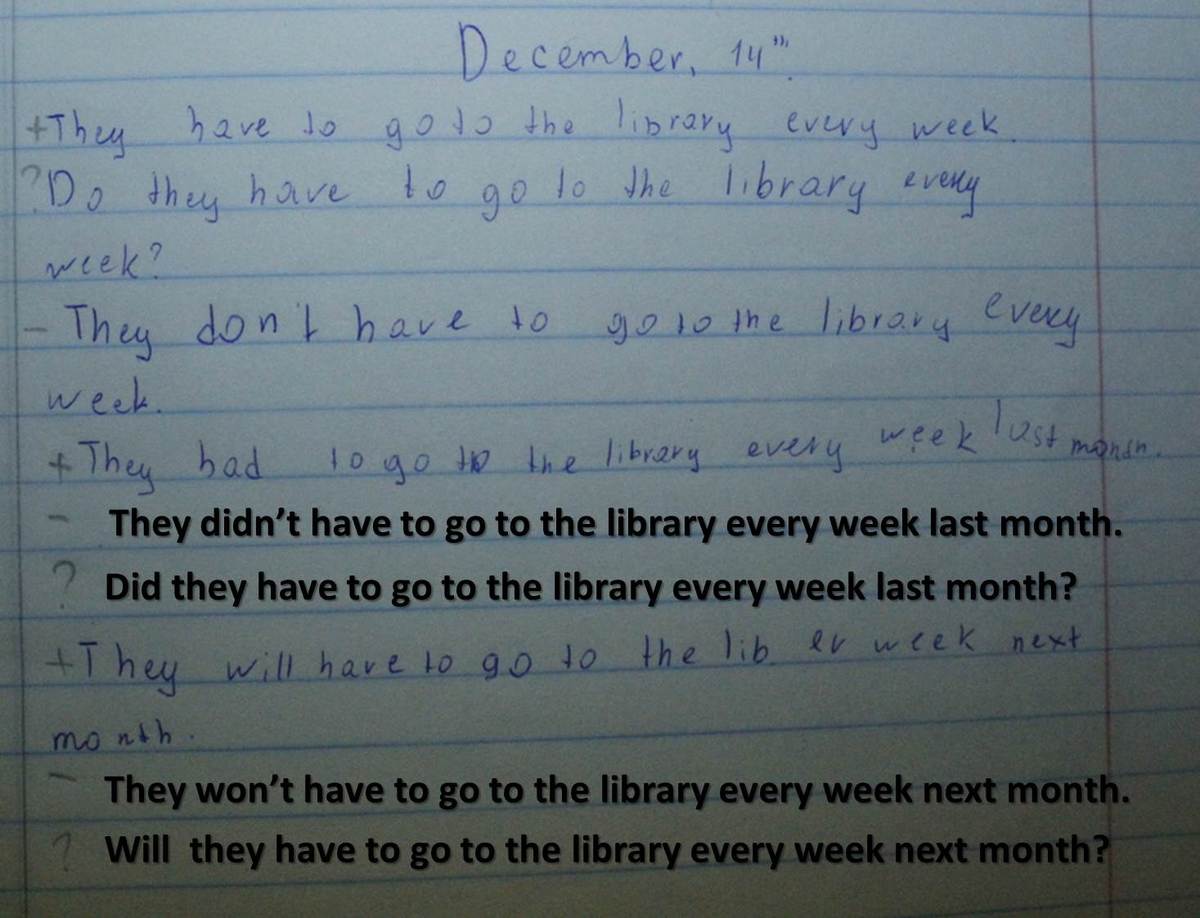 December, 14th.
+They have to go to the library every week.
?Do they have to go to the library every
week?
- They don't have to go to the library every
week.
+ They had to go to the library every week last month.
- They didn't have to go to the library every week last month.
? Did they have to go to the library every week last month?
+They will have to go to the lib. ev week next
month.
- They won't have to go to the library every week next month.
? Will they have to go to the library every week next month?